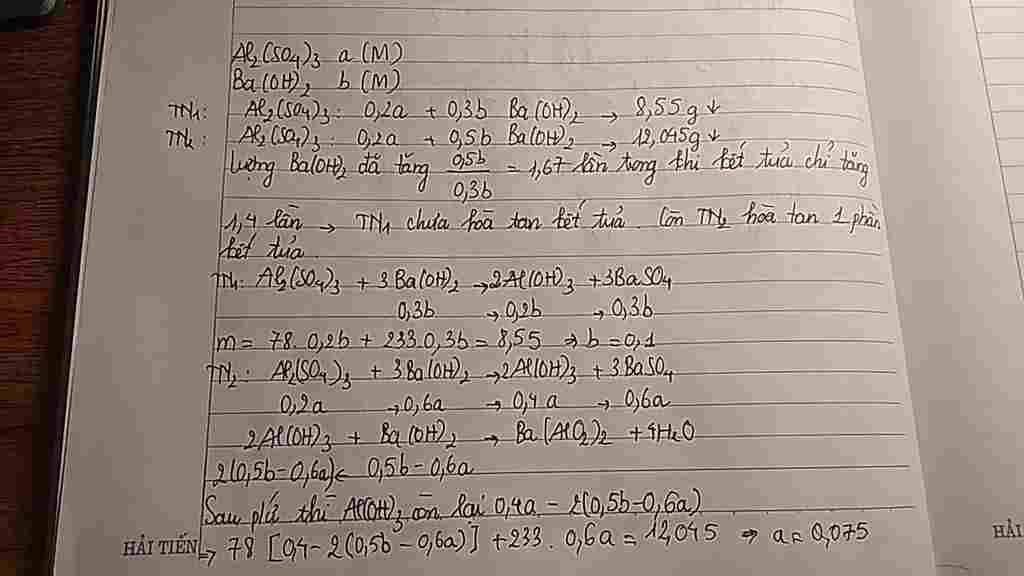 Al₂(SO₄)₃ a (M)
Ba(OH)₂ b (M)
TN₁: Al₂(SO₄)₃: 0,2a + 0,3b Ba(OH)₂ → 8,55g ↓
TN₂: Al₂(SO₄)₃: 0,2a + 0,5b Ba(OH)₂ → 12,045g ↓
Lượng Ba(OH)₂ đã tăng 0,5b/0,3b = 1,67 lần trong khi kết tủa chỉ tăng
1,4 lần → TN₁ chưa hoà tan kết tủa. Còn TN₂ hoà tan 1 phần
kết tủa.
TN₁: Al₂(SO₄)₃ + 3Ba(OH)₂ → 2Al(OH)₃ + 3BaSO₄
0,3b → 0,2b → 0,3b
m = 78. 0,2b + 233.0,3b = 8,55 ⇒ b = 0,1
TN₂: Al₂(SO₄)₃ + 3Ba(OH)₂ → 2Al(OH)₃ + 3BaSO₄
0,2a → 0,6a → 0,4a → 0,6a
2Al(OH)₃ + Ba(OH)₂ → Ba(AlO₂)₂ + 4H₂O
2(0,5b-0,6a) ← 0,5b-0,6a
Sau p/ứ thì Al(OH)₃ còn lại 0,4a - 2(0,5b-0,6a)
→ 78 [0,4-2(0,5b-0,6a)] + 233. 0,6a = 12,045 ⇒ a = 0,075
HẢI TIẾN
HẢI